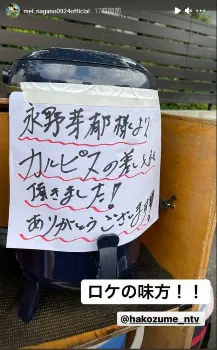 mei_nagano0924official 17時間前
永野芽郁様より
カルピスの差し入れ
頂きました!
ありがとうございます!!
ロケの味方!!
@hakozume_ntv